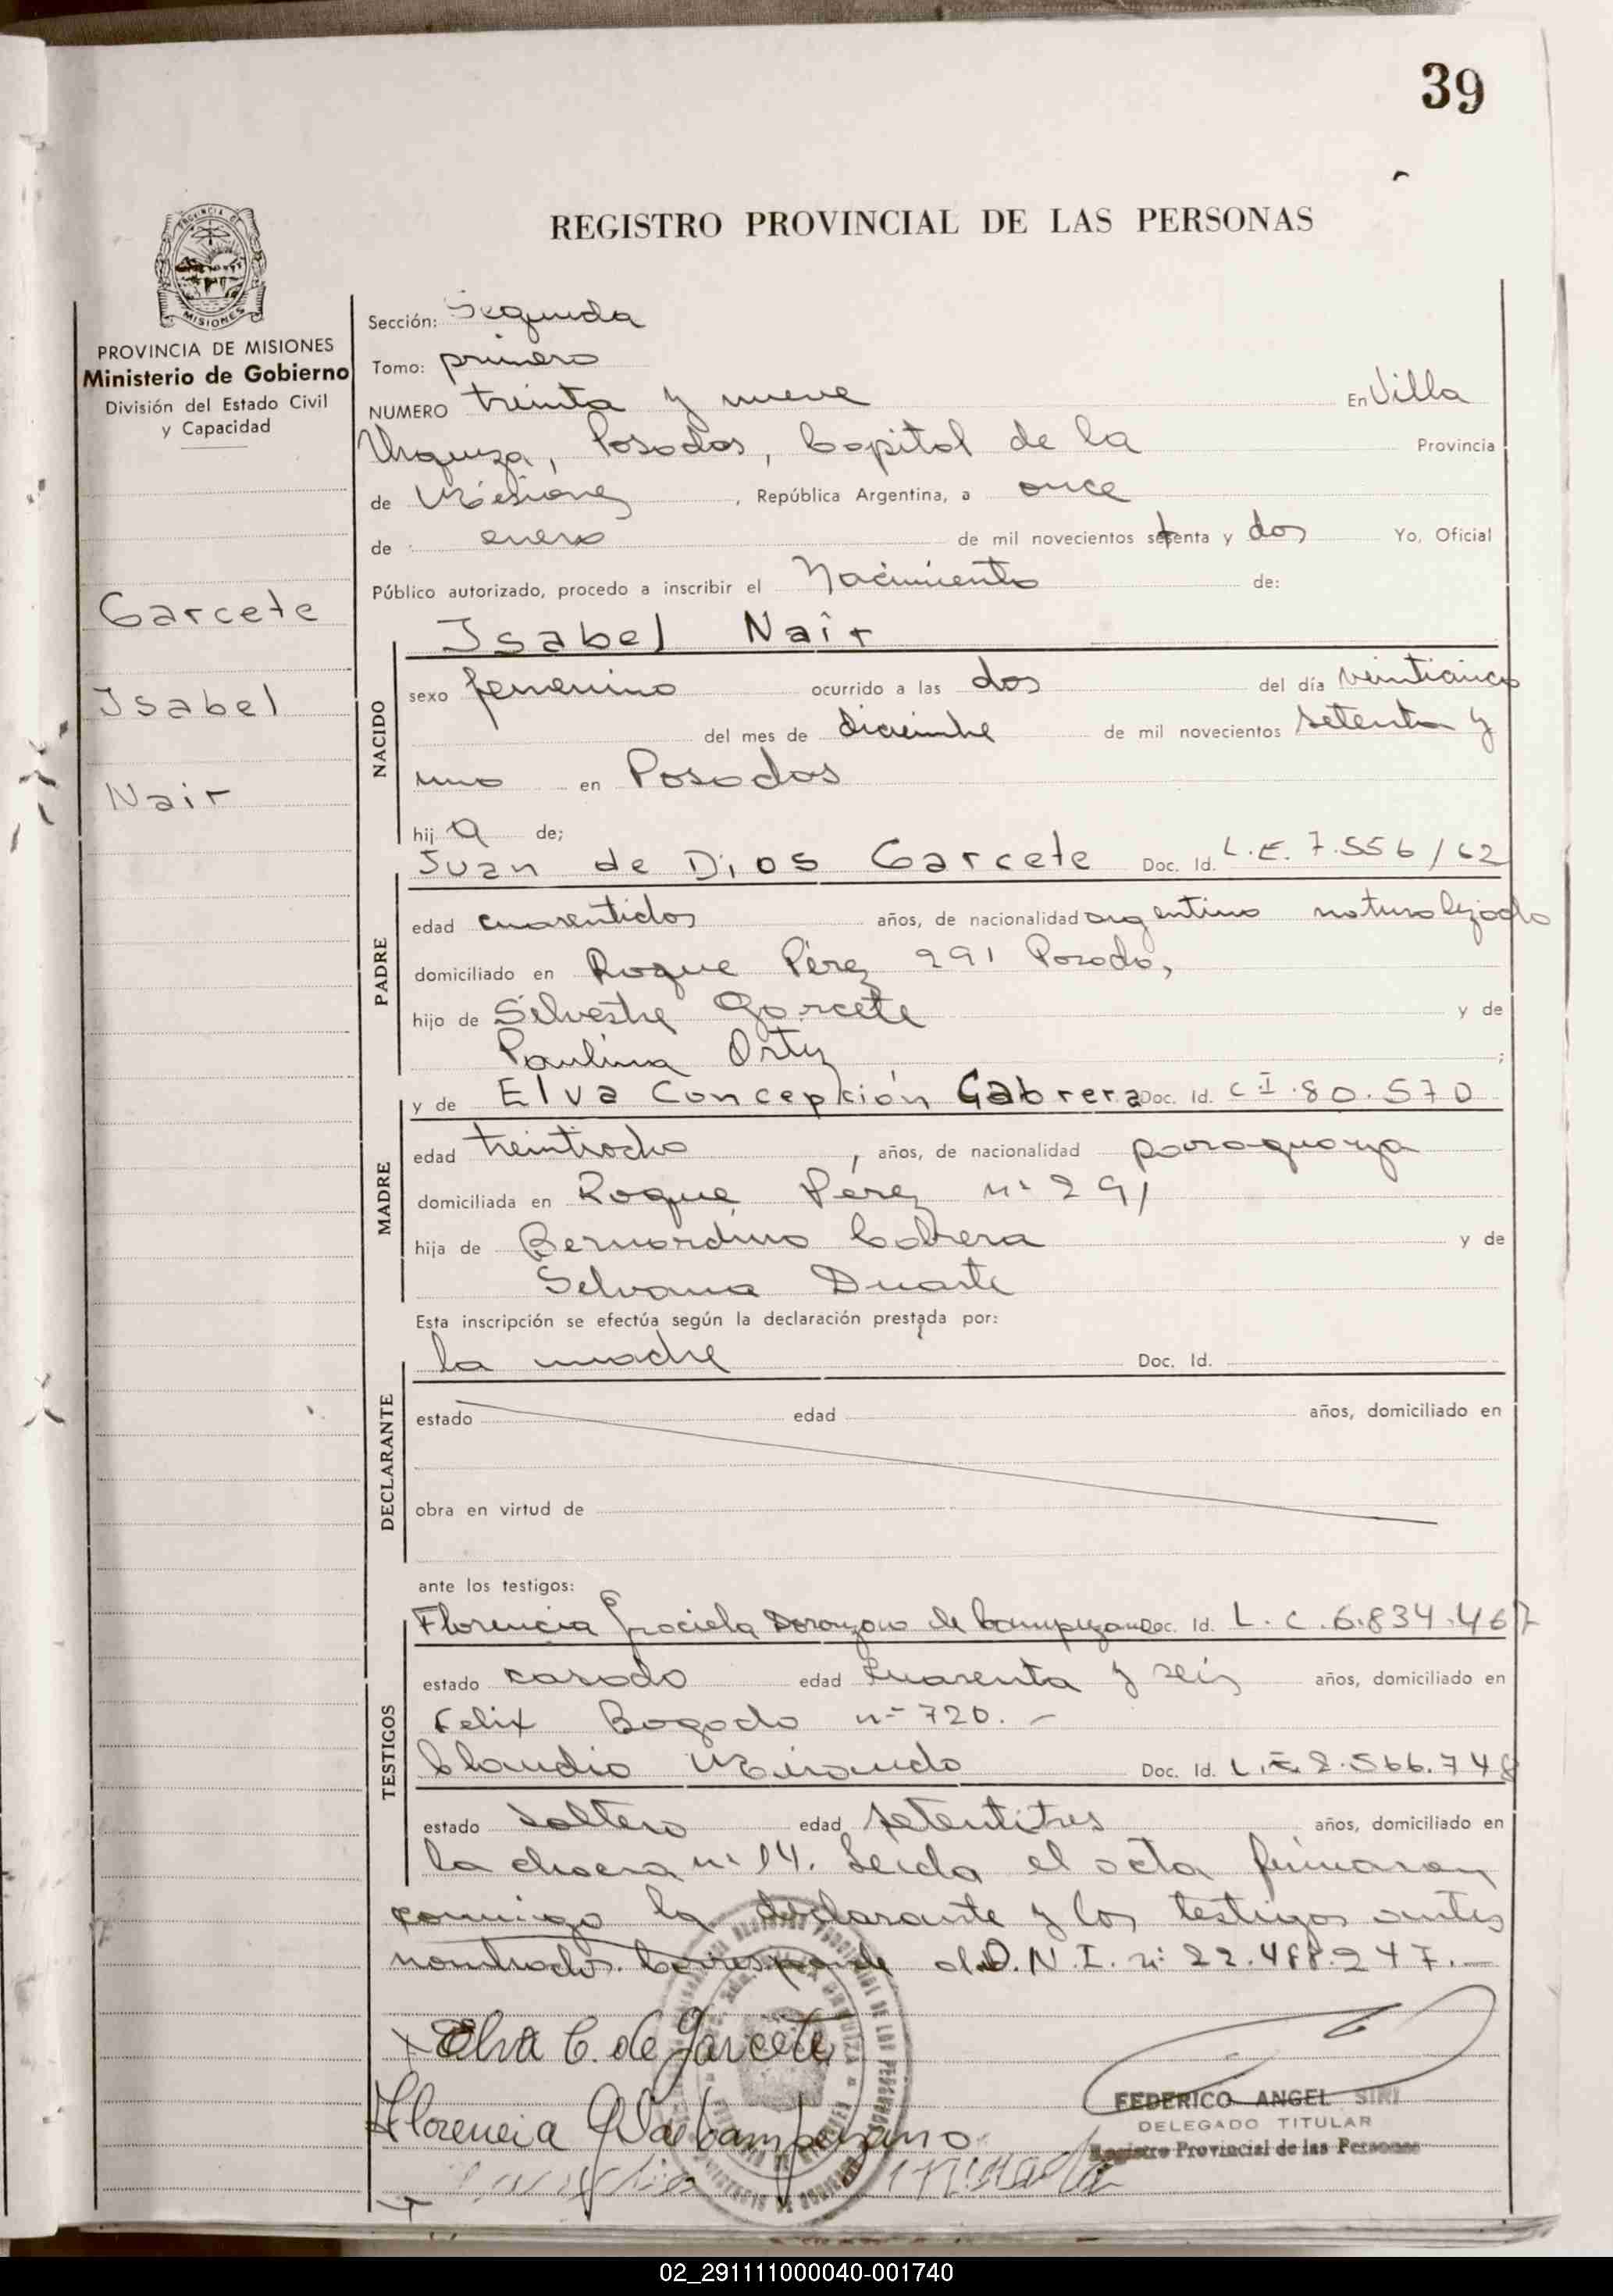 39
REGISTRO PROVINCIAL DE LAS PERSONAS
PROVINCIA DE MISIONES
MISIONES
PROVINCIA DE MISIONES
Ministerio de Gobierno
División del Estado Civil
y Capacidad
Garcete
Isabel
Nair
Sección: Segunda
Tomo: primero
NUMERO treinta y nueve En Villa
Urquiza, Posadas, Capital de la Provincia
de Misiones, República Argentina, a once
de enero de mil novecientos setenta y dos Yo, Oficial
Público autorizado, procedo a inscribir el Nacimiento de:
NACIDO
Isabel Nair
sexo femenino ocurrido a las dos del día veinticinco
del mes de diciembre de mil novecientos setenta y
uno en Posadas
hija de;
PADRE
Juan de Dios Garcete Doc. Id. L.E. 7.556/62
edad cuarentidos años, de nacionalidad argentino naturalizado
domiciliado en Roque Pérez 291 Posadas,
hijo de Silvestre Garcete y de
Paulina Ortiz ;
MADRE
y de Elva Concepción Cabrera Doc. Id. C I. 80.570
edad treintiocho, años, de nacionalidad paraguaya
domiciliada en Roque Pérez nº 291
hija de Bernardino Cabrera y de
Selvana Duarte
Esta inscripción se efectúa según la declaración prestada por:
DECLARANTE
la madre Doc. Id.
estado edad años, domiciliado en
obra en virtud de
ante los testigos:
TESTIGOS
Florencia Graciela de Doc. Id. L. C. 6.834.467
estado casada edad cuarenta y seis años, domiciliado en
Felix Bogado nº 720. -
Claudio Miranda Doc. Id. L.E. 2.566.748
estado soltero edad setentitres años, domiciliado en
la chacra nº 14. Leida el acta firmaron
conmigo la declarante y los testigos antes
nombrados. Corresponde al D.N.I. nº 22.488.247.-
Elva C. de Garcete
Florencia
FEDERICO ANGEL SIRI
DELEGADO TITULAR
Registro Provincial de las Personas
02_291111000040-001740